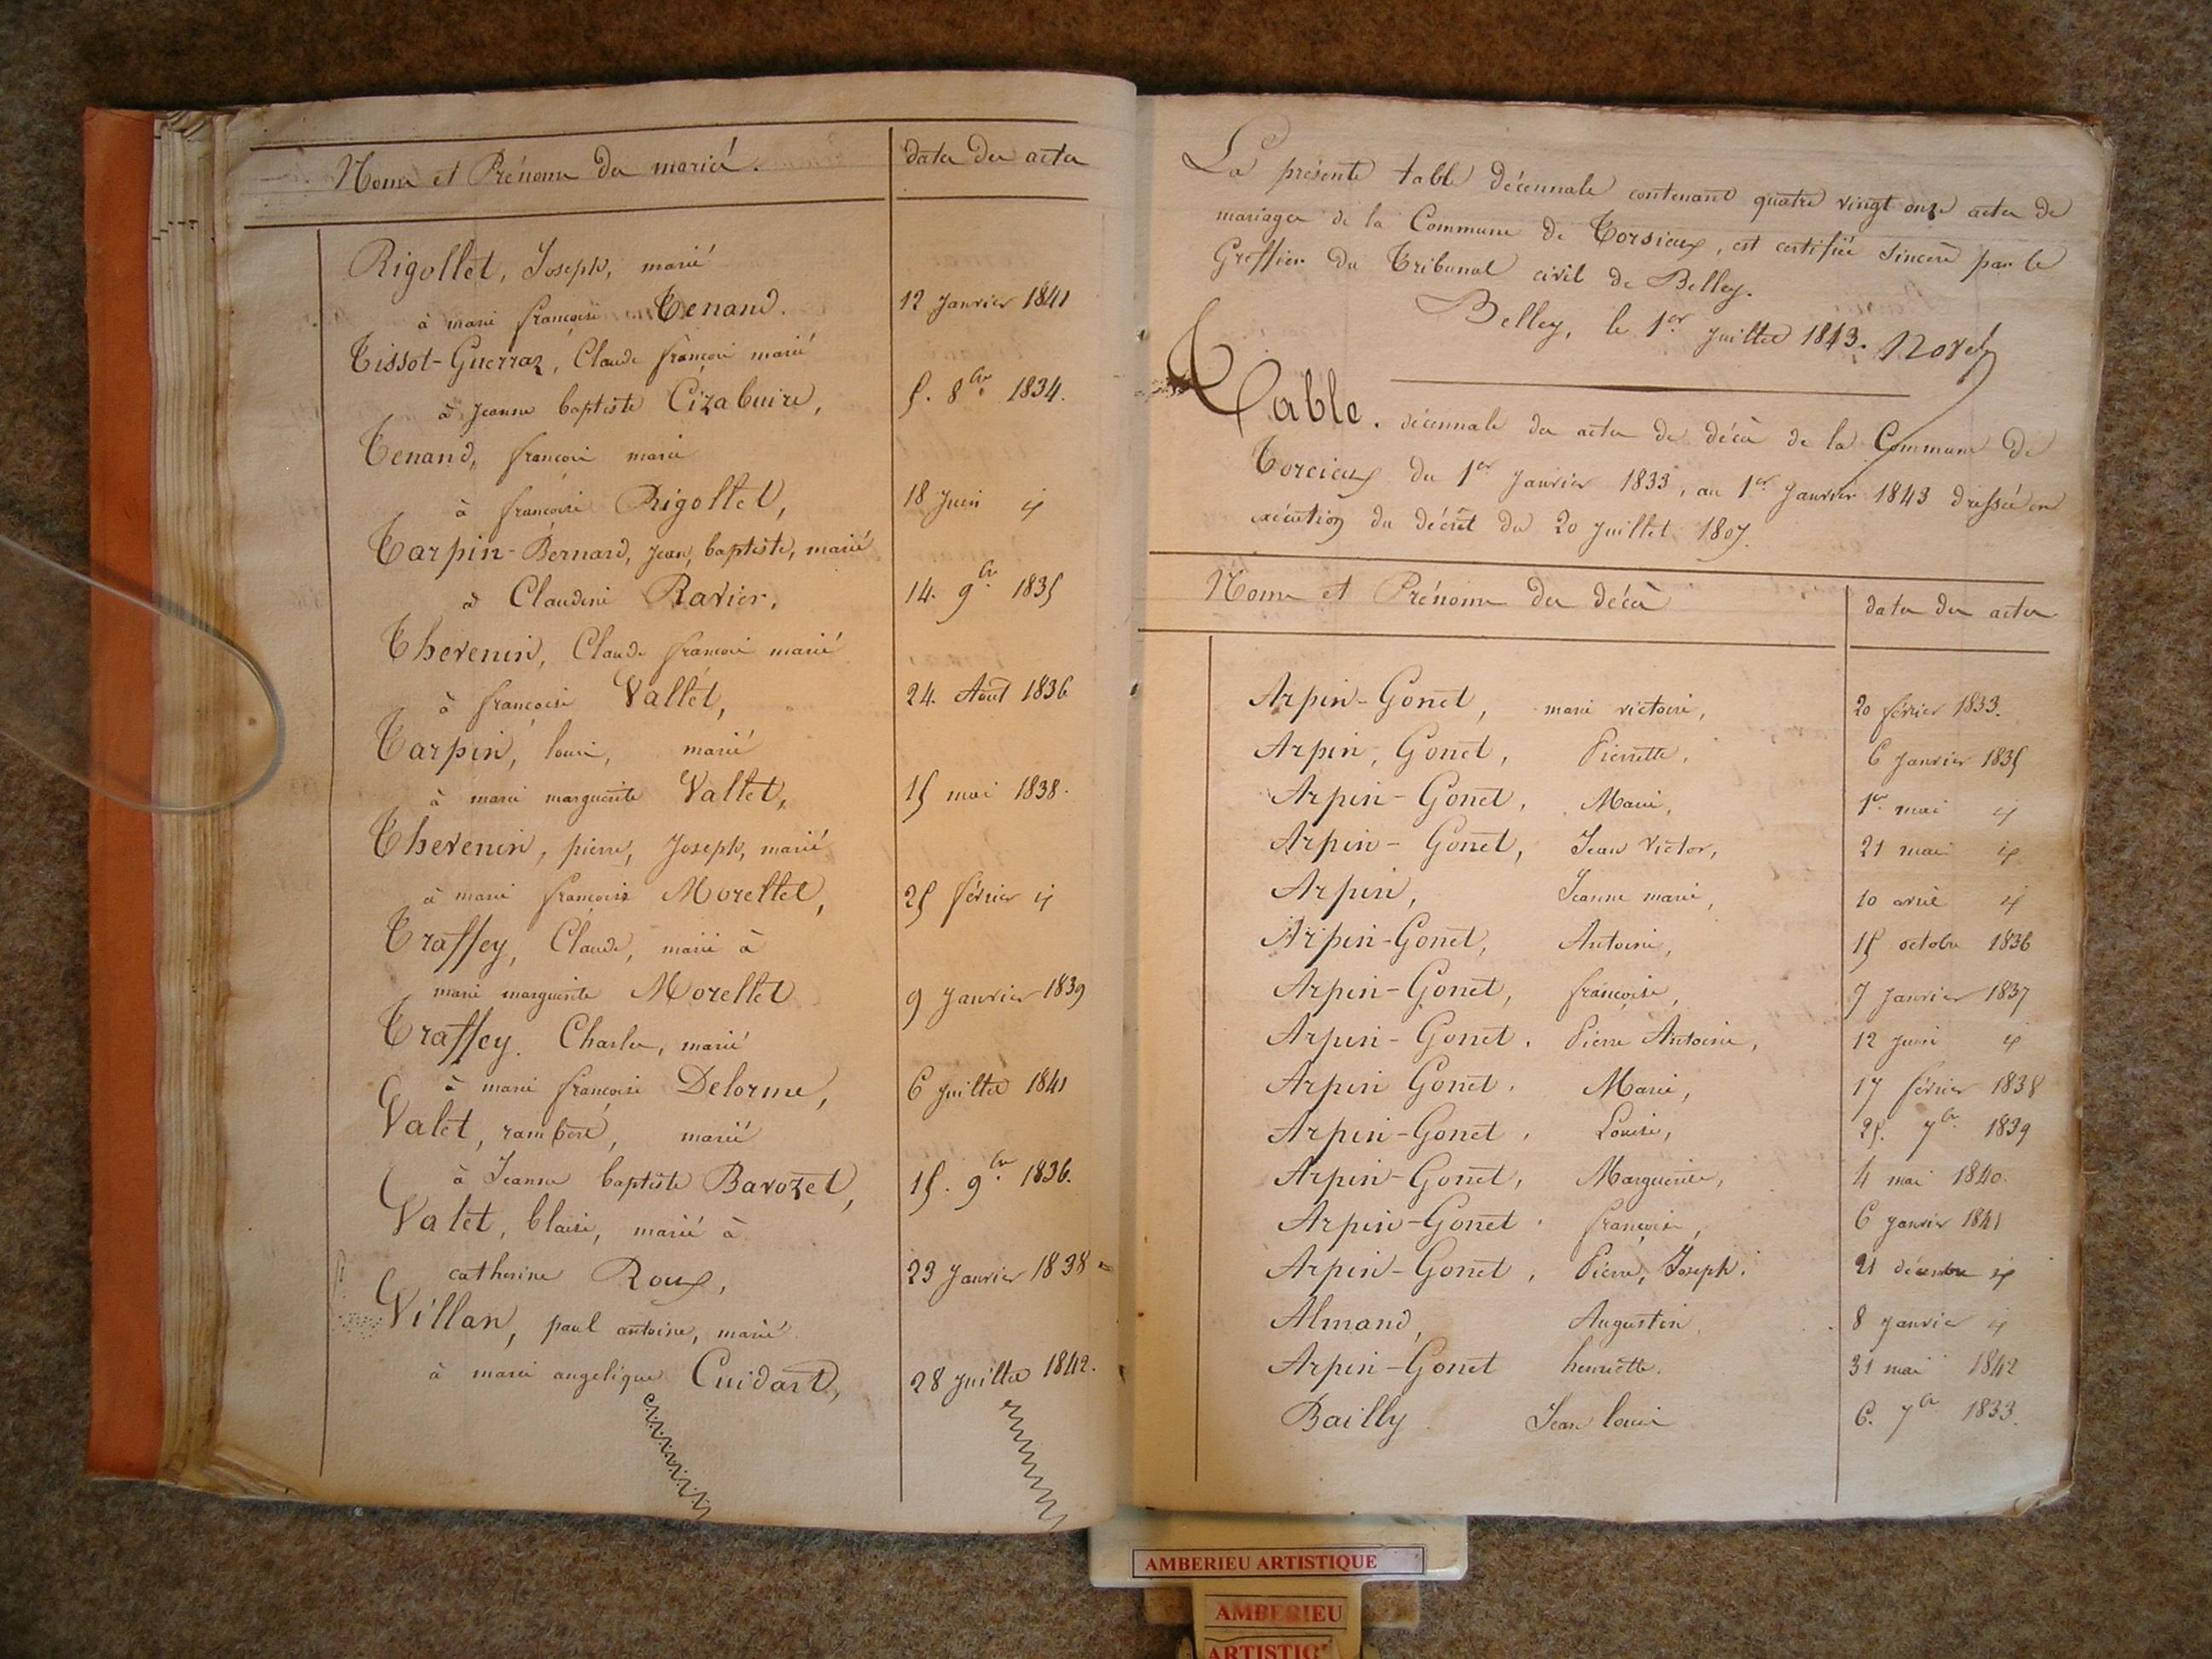 Noms et Prénoms des mariés.
dates des actes
Rigollet, Joseph, marié
à marie françoise Tenand.
12 Janvier 1841
Tissot-Guerraz, Claude françois marié
à Jeanne baptiste Cizabuire,
5. 8bre 1834.
Tenand, françois marié
à françoise Rigollet,
18 Juin id
Tarpin-Bernard, Jean, baptiste, marié
à Claudine Ravier,
14. 9bre 1835
Thevenin, Claude françois marié
à françoise Vallet,
24. Août 1836
Tarpin, louis, marié
à marie marguerite Vallet,
15 mai 1838.
Thevenin, pierre, Joseph, marié
à marie françoise Morellet,
25 février id
Traffey, Claude, marié à
marie marguerite Morellet
9 Janvier 1839
Traffey. Charles, marié
à marie françoise Delorme,
6 Juillet 1841
Valet, rambert, marié
à Jeanne baptiste Barozet,
15. 9bre 1836.
Valet, blaise, marié à
catherine Roux,
23 Janvier 1838
Villan, paul antoine, marié
à marie angelique Cuidard,
28 Juillet 1842.
La présente table décennale contenant quatre vingt onze actes de
mariages de la Commune de Torsieux, est certifiée sincère par le
Greffier du Tribunal civil de Belley.
Belley, le 1er Juillet 1843.
Table. décennale des actes de décès de la Commune de
Torcieux du 1er Janvier 1833, au 1er Janvier 1843 dressée en
exécution du décret du 20 Juillet 1807.
Noms et Prénoms des décès
dates des actes
Arpin-Gonet, marie victoire, 20 février 1833.
Arpin, Gonet, Pierrette, 6 Janvier 1835
Arpin-Gonet, Marie, 1er mai id
Arpin-Gonet, Jean Victor, 21 mai id
Arpin, Jeanne marie, 10 avril id
Arpin-Gonet, Antoine, 15 octobre 1836
Arpin-Gonet, françoise, 7 Janvier 1837
Arpin-Gonet. Pierre Antoine, 12 Juin id
Arpin Gonet. Marie, 17 février 1838
Arpin-Gonet, Louise, 25. 7bre 1839
Arpin-Gonet, Marguerite, 4 mai 1840.
Arpin-Gonet. françoise, 6 Janvier 1841
Arpin-Gonet, Pierre, Joseph. 21 décembre id
Almand, Augustin, 8 Janvier id
Arpin-Gonet henriette. 31 mai 1842
Bailly Jean louis 6. 7bre 1833.
AMBERIEU ARTISTIQUE
AMBERIEU
ARTISTIQ